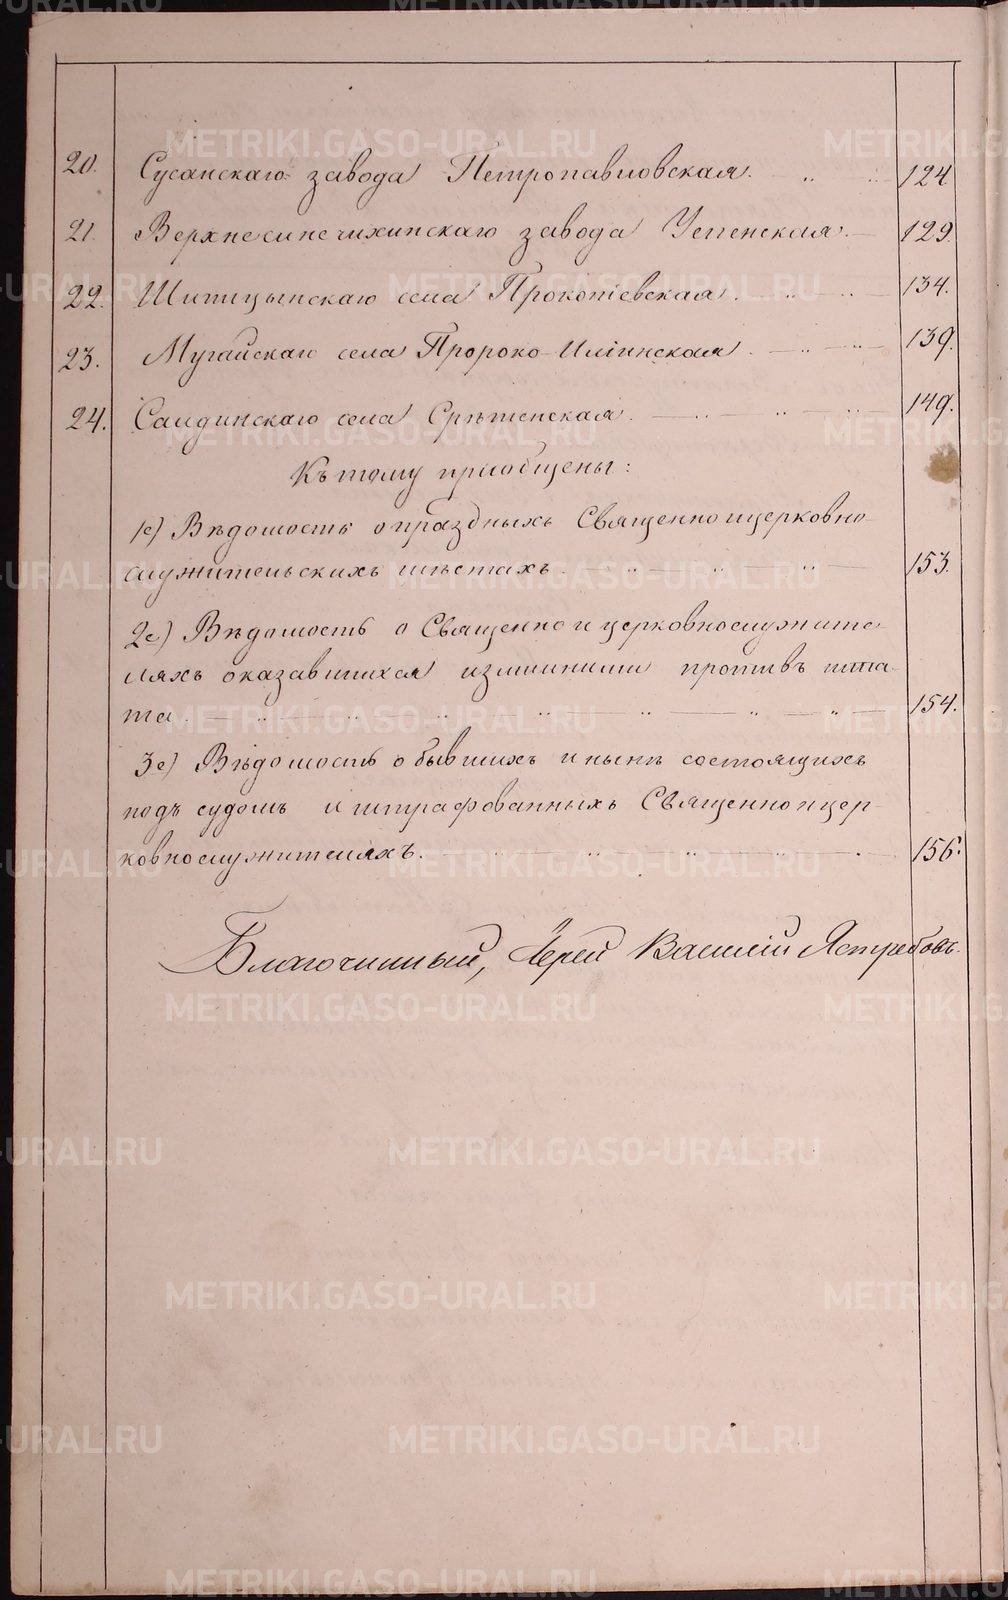 20. Сусанскаго завода Петропавловская. 124
21. Верхнесинечихинскаго завода Успенская. 129.
22. Шипицынскаго села Прокопіевская. 134.
23. Мугайскаго села Пророко-Ильинская 139.
24. Салдинскаго села Срѣтенская. 149.
Къ тому пріобщены:
1е) Вѣдомость о праздныхъ Священноицерковно-
служительскихъ мѣстахъ. 153.
2е) Вѣдомость о Священно и церковнослужите-
ляхъ оказавшихся излишними противъ шта-
та. 154.
3е) Вѣдомость о бывшихъ и нынѣ состоящихъ
подъ судомъ и штрафованныхъ Священноицер-
ковнослужителяхъ. 156.
Благочинный, Іерей Василій Ястребовъ.
METRIKI.GASO-URAL.RU